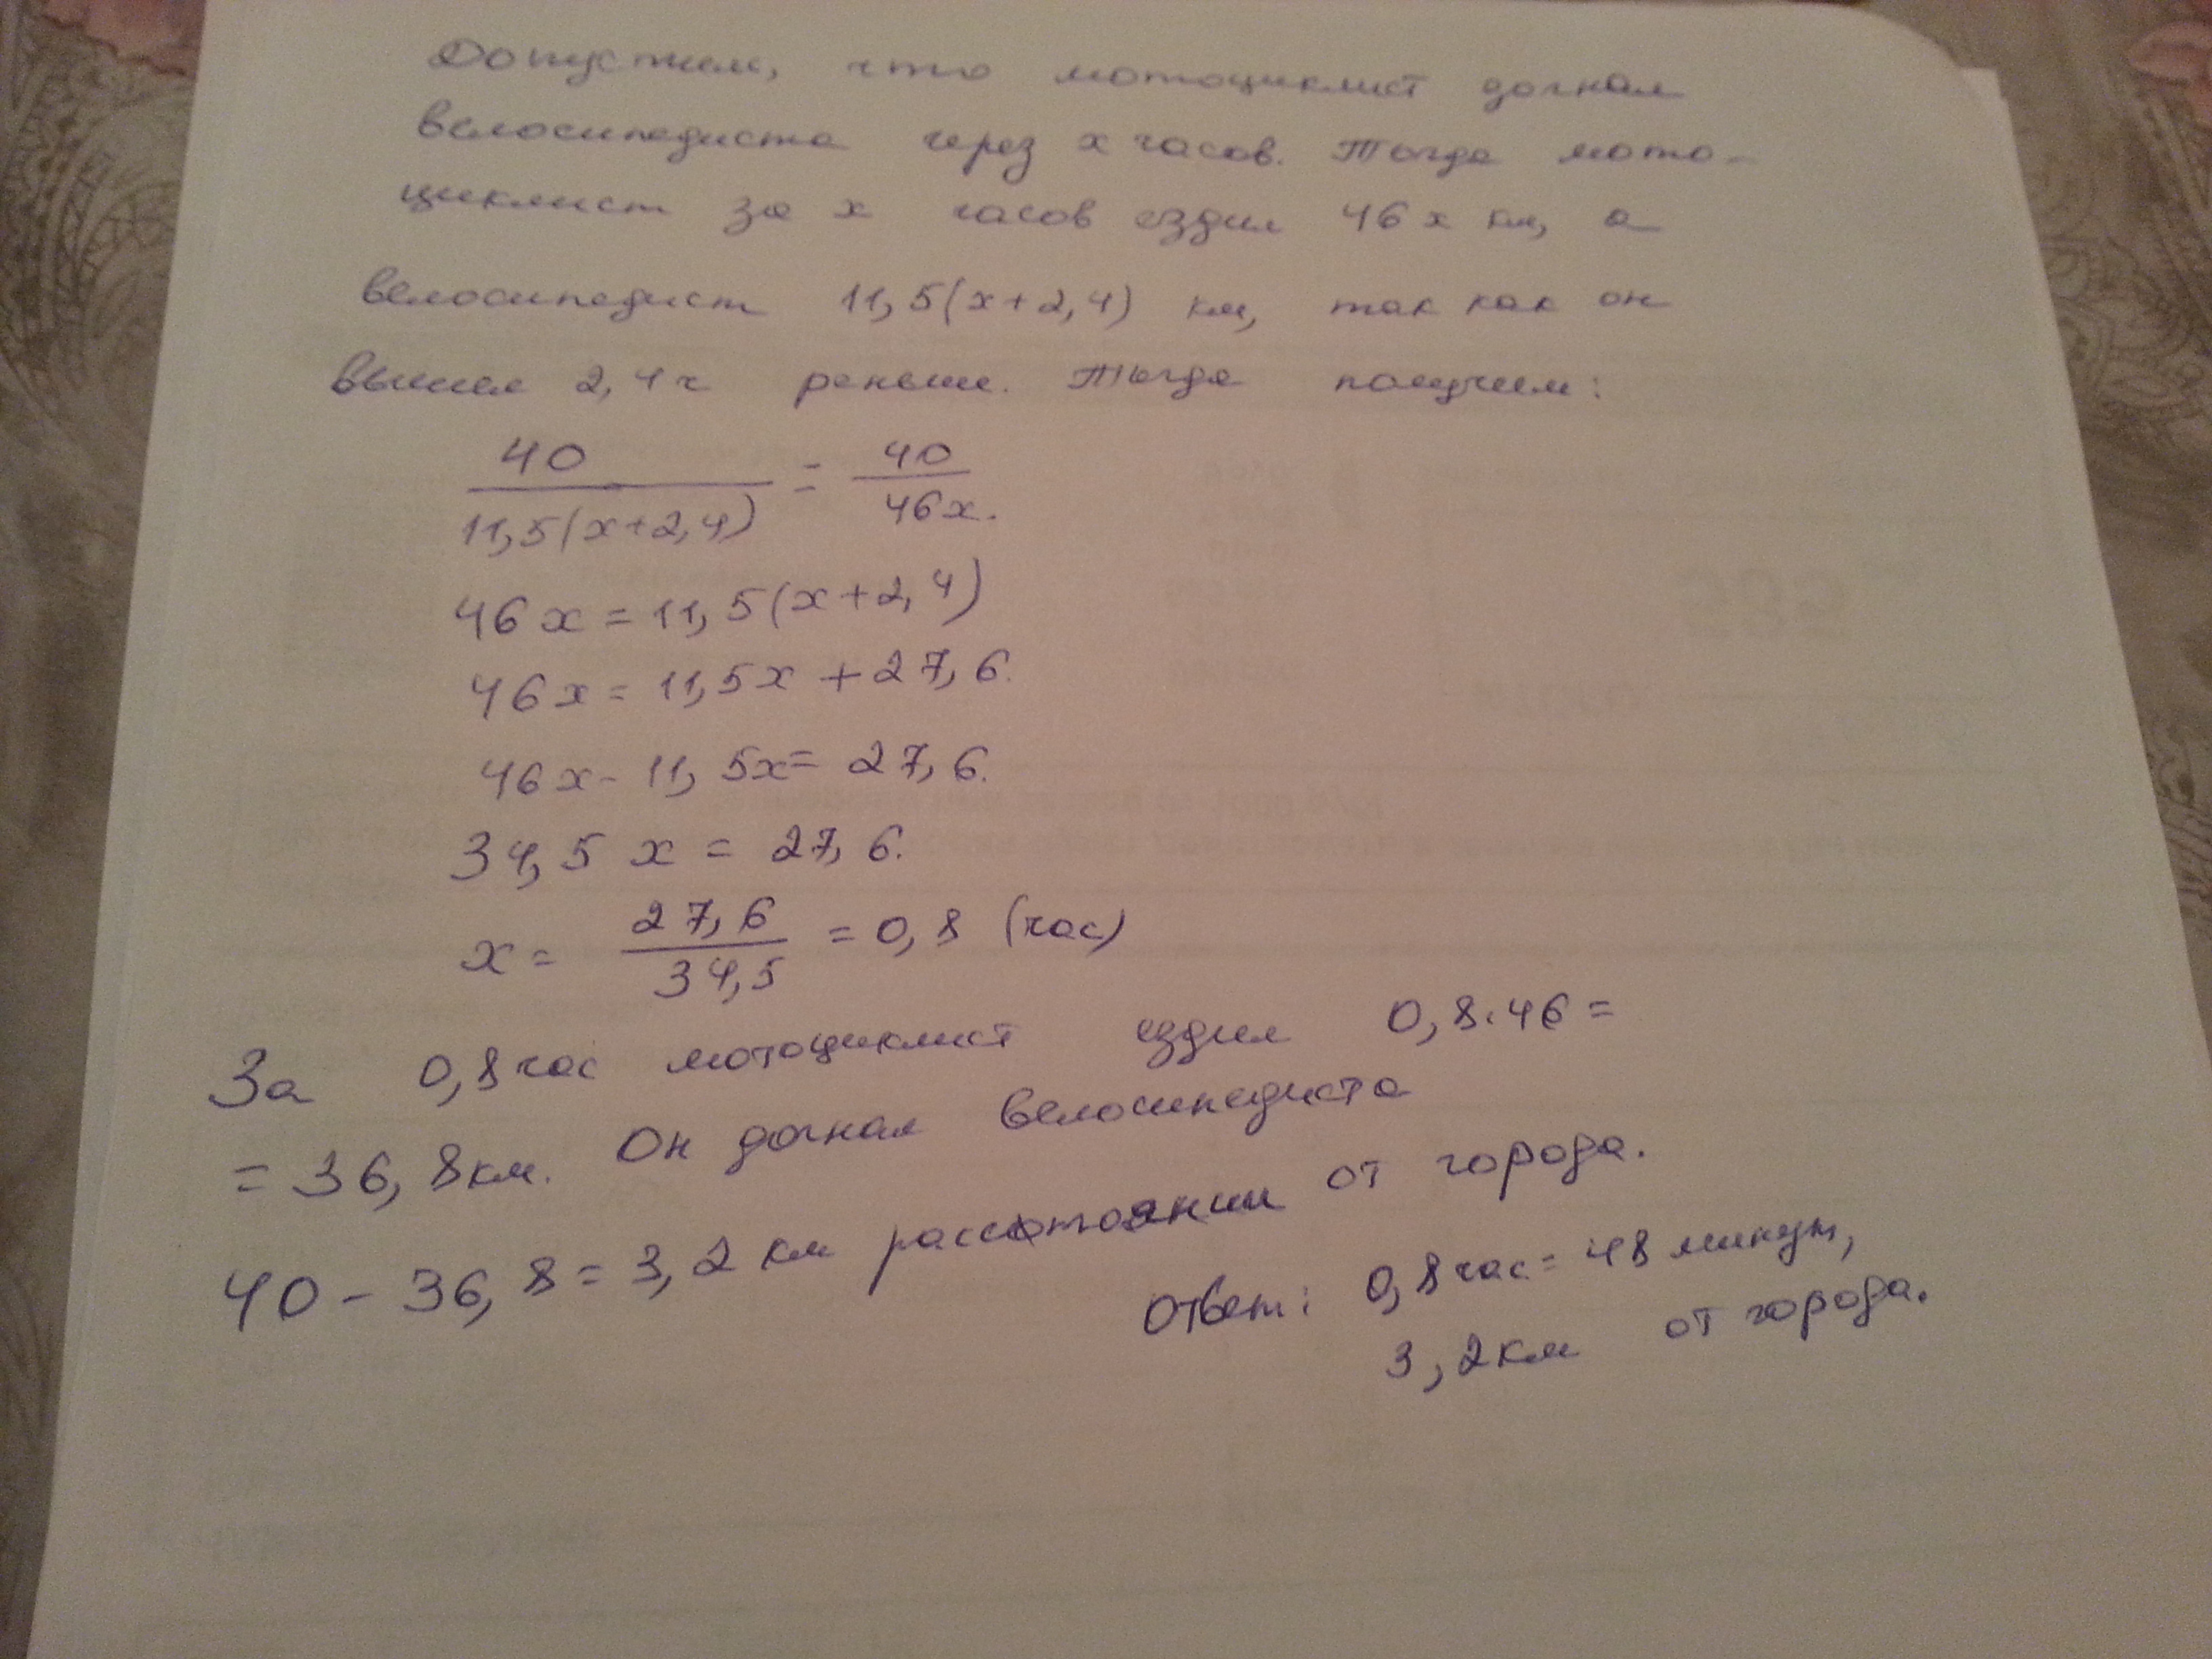 Допустим, что мотоциклист догнал
велосипедиста через x часов. Тогда мото-
циклист за x часов ездил 46x км, а
велосипедист 11,5(x+2,4) км, так как он
вышел 2,4ч раньше. Тогда получим:
40/11,5(x+2,4) = 40/46x.
46x = 11,5(x+2,4)
46x = 11,5x + 27,6.
46x - 11,5x = 27,6.
34,5 x = 27,6.
x = 27,6/34,5 = 0,8 (час)
За 0,8 час мотоциклист ездил 0,8·46=
= 36,8 км. Он догнал велосипедиста
40 - 36,8 = 3,2 км расстоянии от города.
Ответ: 0,8 час = 48 минут,
3,2 км от города.